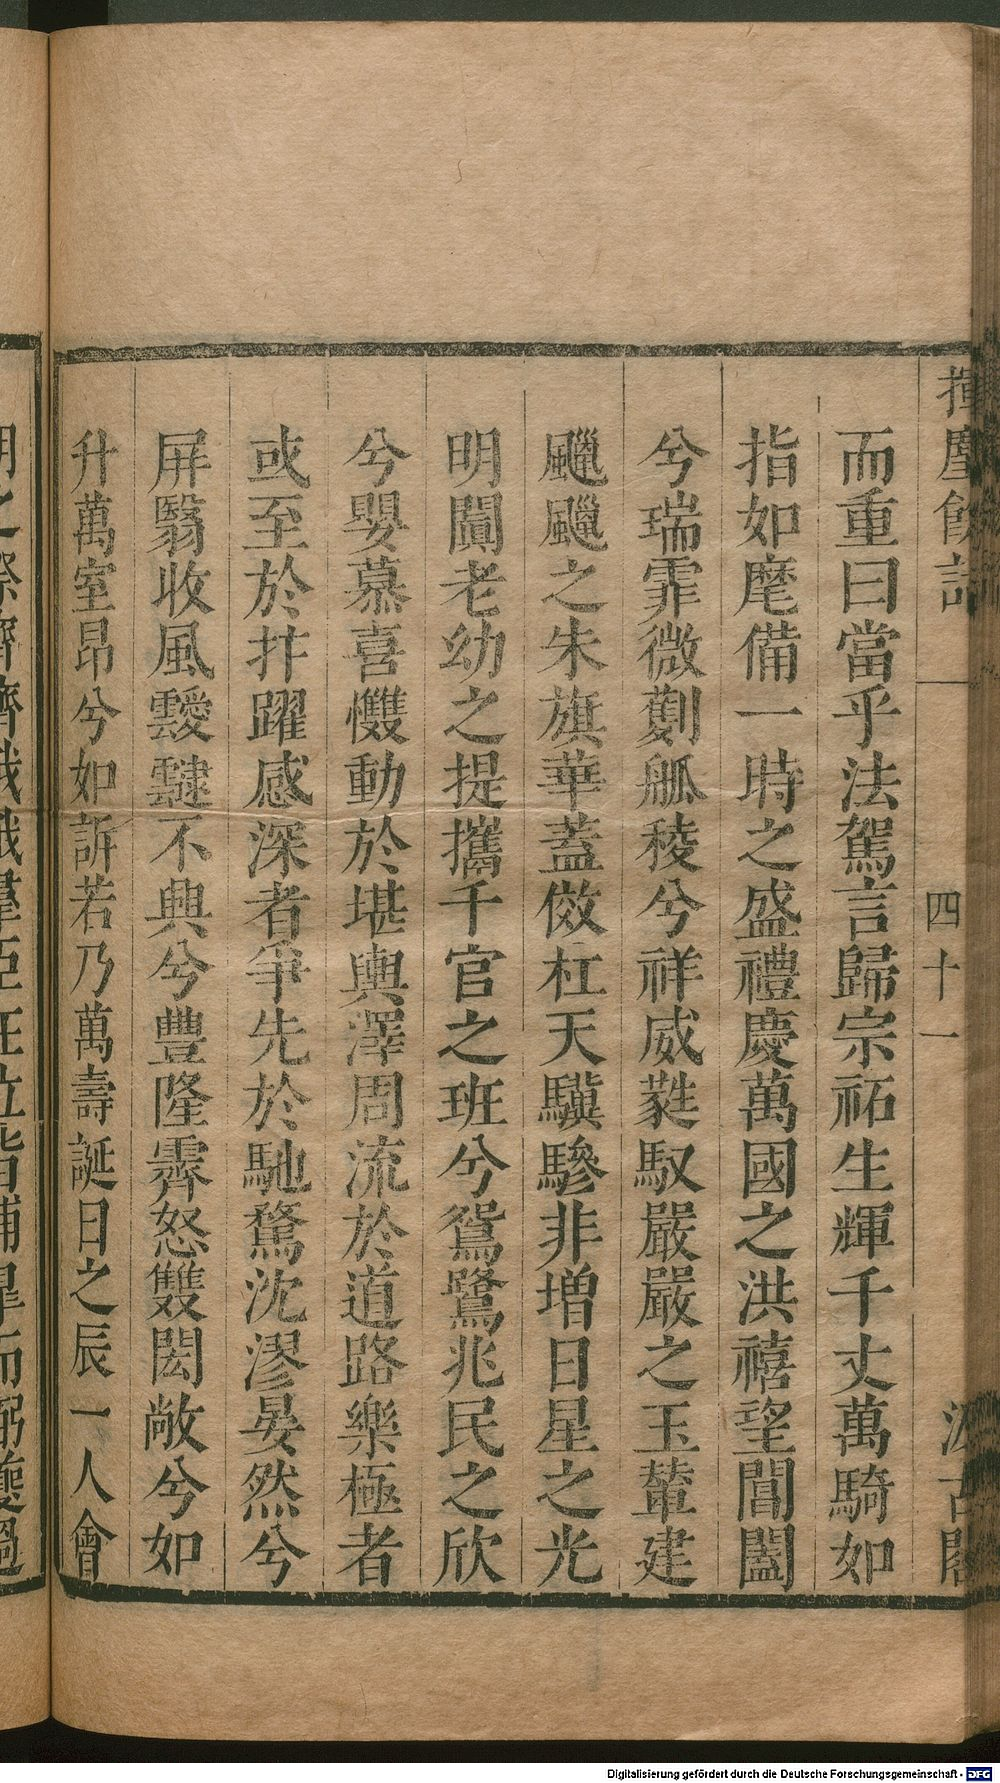 揮麈餘話
四十一
汲古閣
而重曰當乎法駕言歸宗祏生輝千丈萬騎如
指如麾備一時之盛禮慶萬國之洪禧望閶闔
兮瑞霏微蒯觚稜兮祥威蕤馭嚴嚴之玉輦建
飀飀之朱旗華蓋儌杠天驥驂非增日星之光
明闐老幼之提攜千官之班兮鴛鷺兆民之欣
兮嬰慕喜慺動於堪輿澤周流於道路樂極者
或至於抃躍感深者爭先於馳騖沈漻晏然兮
屏翳收風靉靆不興兮豐隆霽怒雙閎敞兮如
升萬室昂兮如訴若乃萬壽誕日之辰一人會
Digitalisierung gefördert durch die Deutsche Forschungsgemeinschaft - DFG